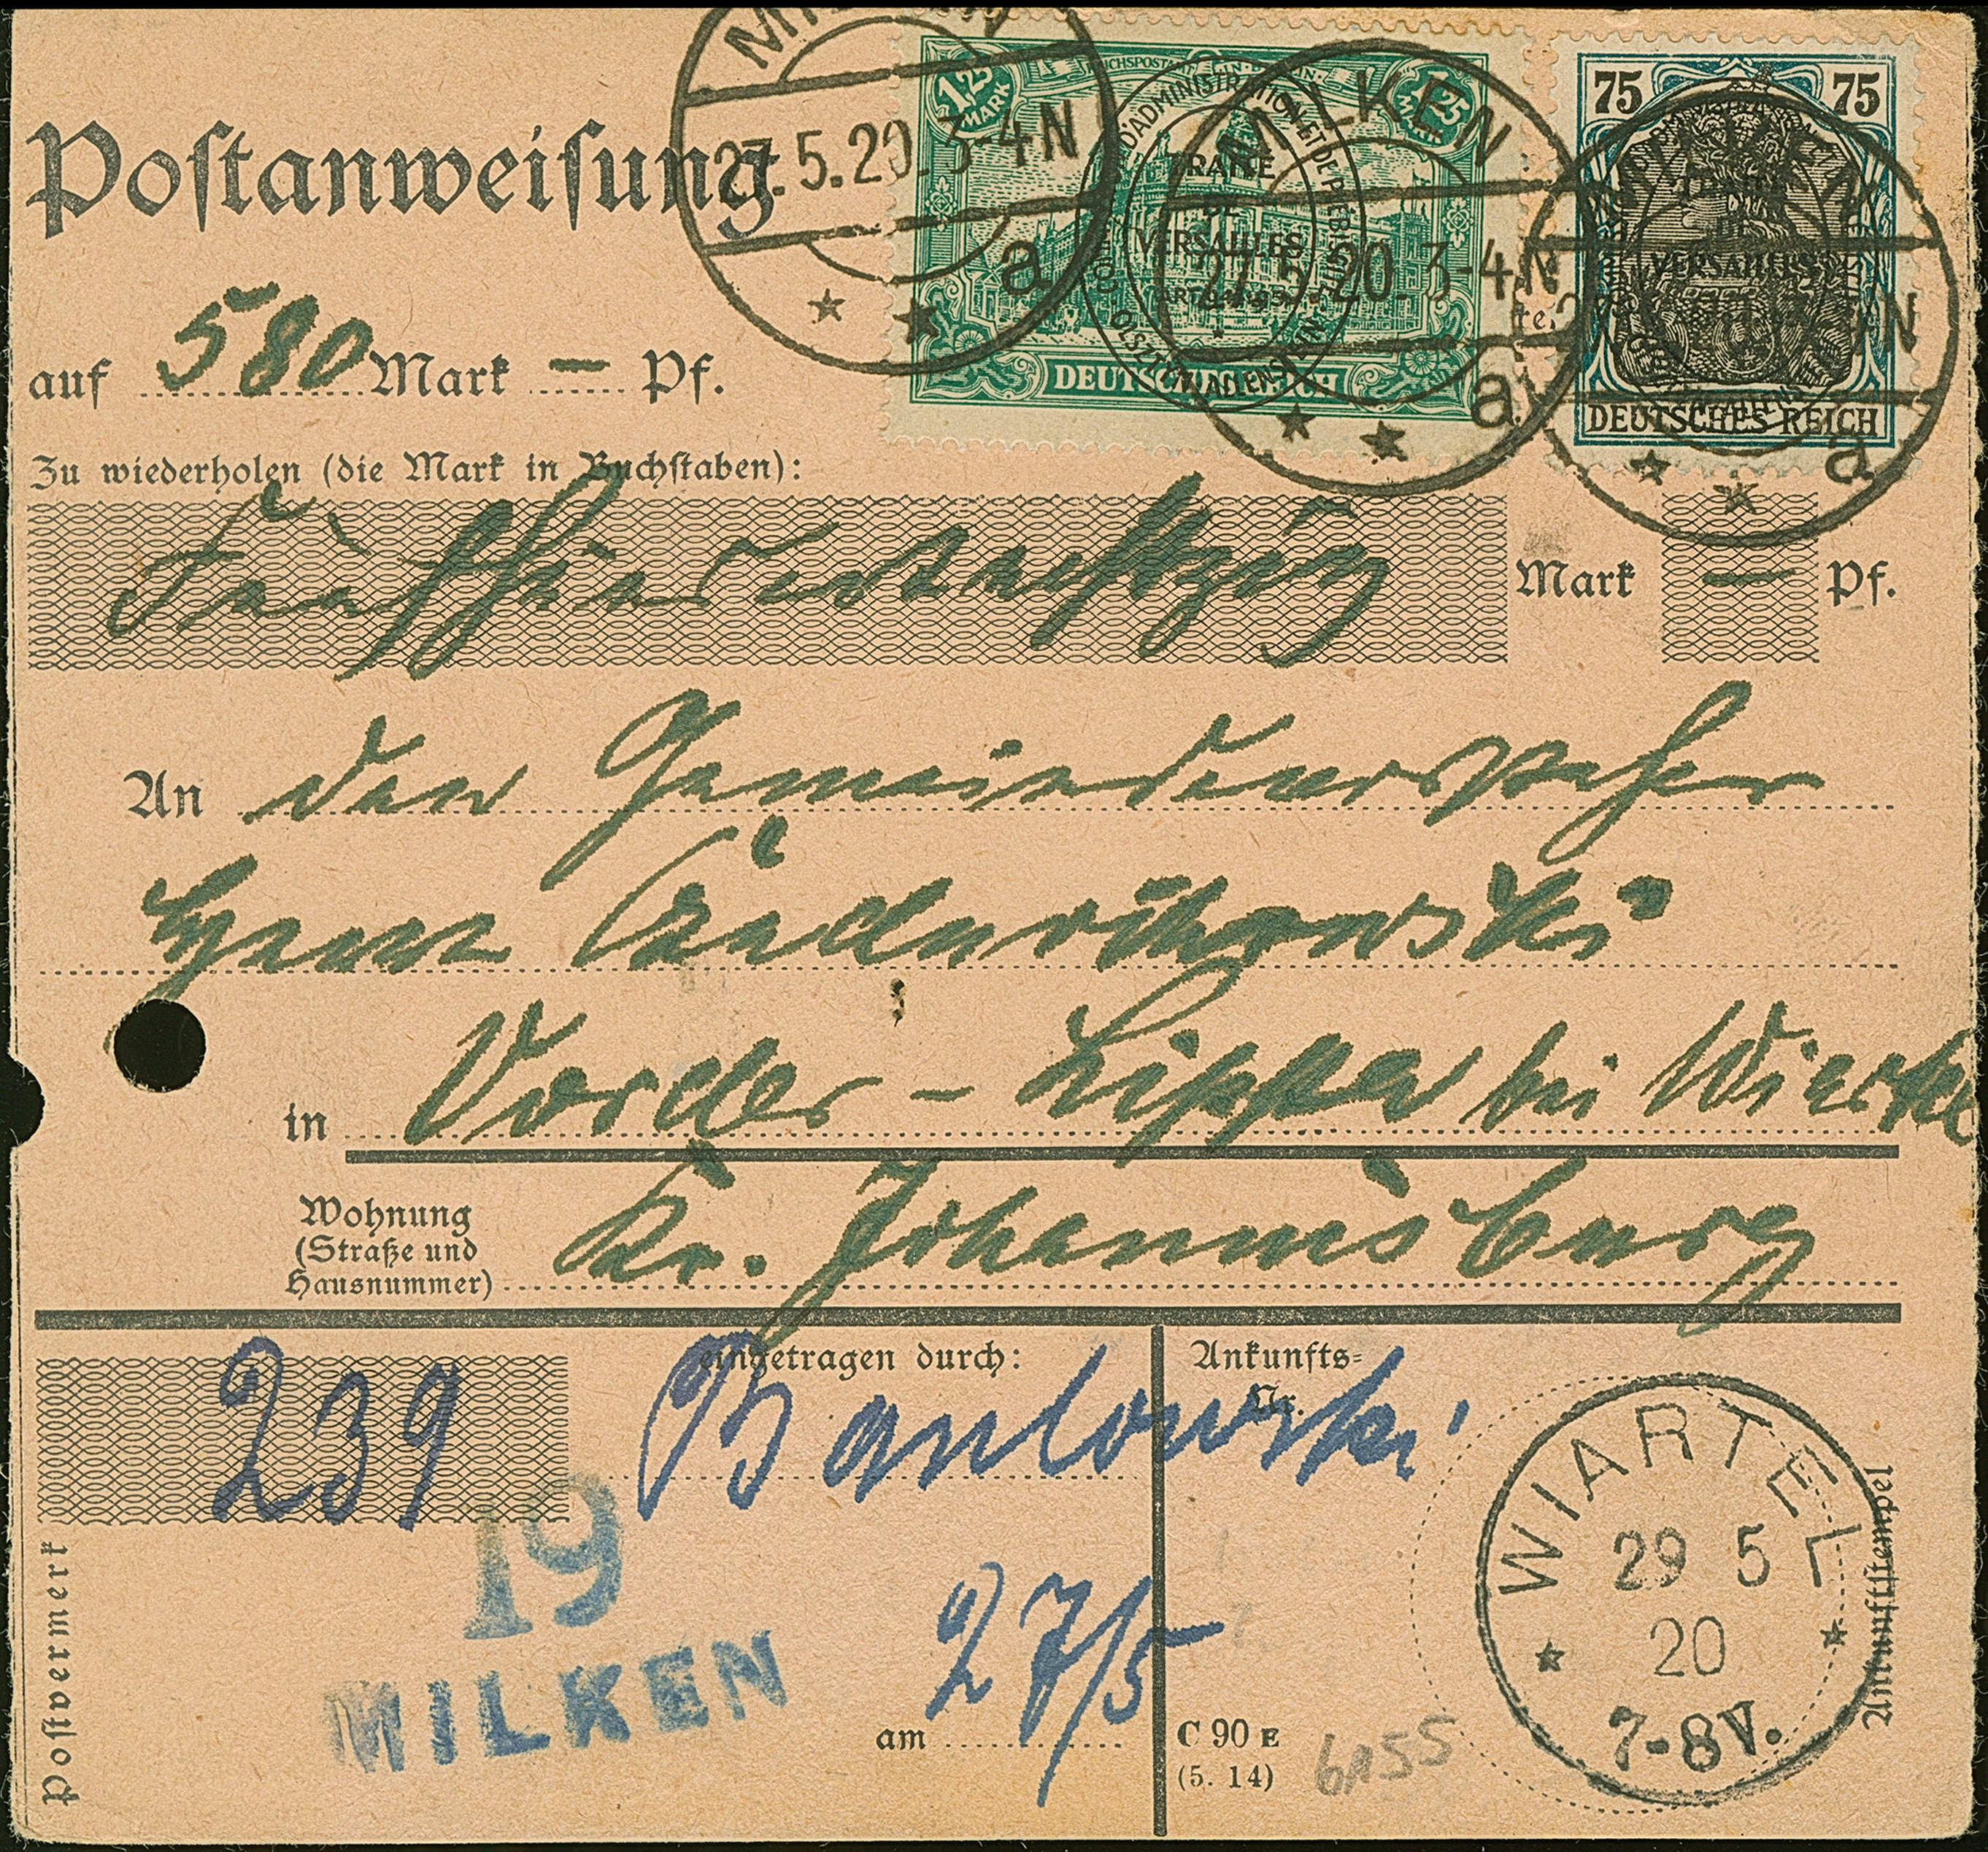 Postanweisung
MILKEN
27.5.20.3-4N
a
1,25 MARK
1,25 MARK
REICHSPOSTAMT IN BERLIN
DEUTSCHES REICH
TRAITÉ
DE
VERSAILLES
OLSZTYN ALLENSTEIN
MILKEN
27.5.20 3-4N
a
75 75
VERSAILLES
DEUTSCHES REICH
a
auf 580 Mark — Pf.
Zu wiederholen (die Mark in Buchstaben):
Fünfhundertachtzig Mark — Pf.
An den Gemeindevorsteher
Herrn
in Vorder-Lippa bei Wiartel
Wohnung
(Straße und
Hausnummer)
Kr. Johannisburg
239
eingetragen durch:
Ankunfts-
Nr.
Postvermerk
19
MILKEN
am 27/5
C 90 E
(5. 14)
WIARTEL
29 5
20
7-8V.
Ankunftsstempel